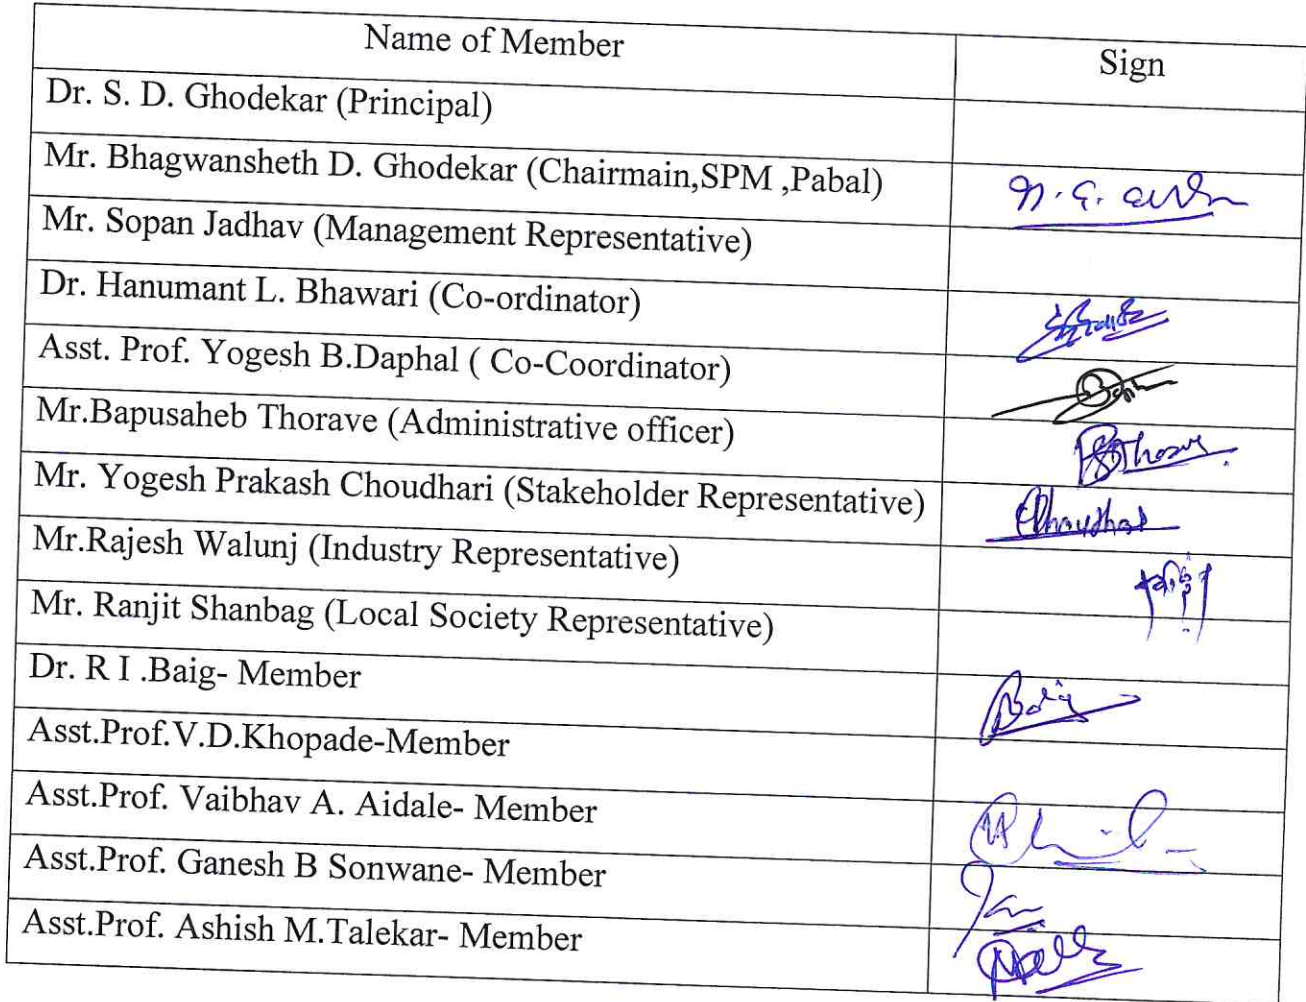 Name of Member Sign
Dr. S. D. Ghodekar (Principal)
Mr. Bhagwansheth D. Ghodekar (Chairmain,SPM ,Pabal)
Mr. Sopan Jadhav (Management Representative)
Dr. Hanumant L. Bhawari (Co-ordinator)
Asst. Prof. Yogesh B.Daphal ( Co-Coordinator)
Mr.Bapusaheb Thorave (Administrative officer)
Mr. Yogesh Prakash Choudhari (Stakeholder Representative)
Mr.Rajesh Walunj (Industry Representative)
Mr. Ranjit Shanbag (Local Society Representative)
Dr. R I .Baig- Member Baig
Asst.Prof.V.D.Khopade-Member
Asst.Prof. Vaibhav A. Aidale- Member
Asst.Prof. Ganesh B Sonwane- Member
Asst.Prof. Ashish M.Talekar- Member